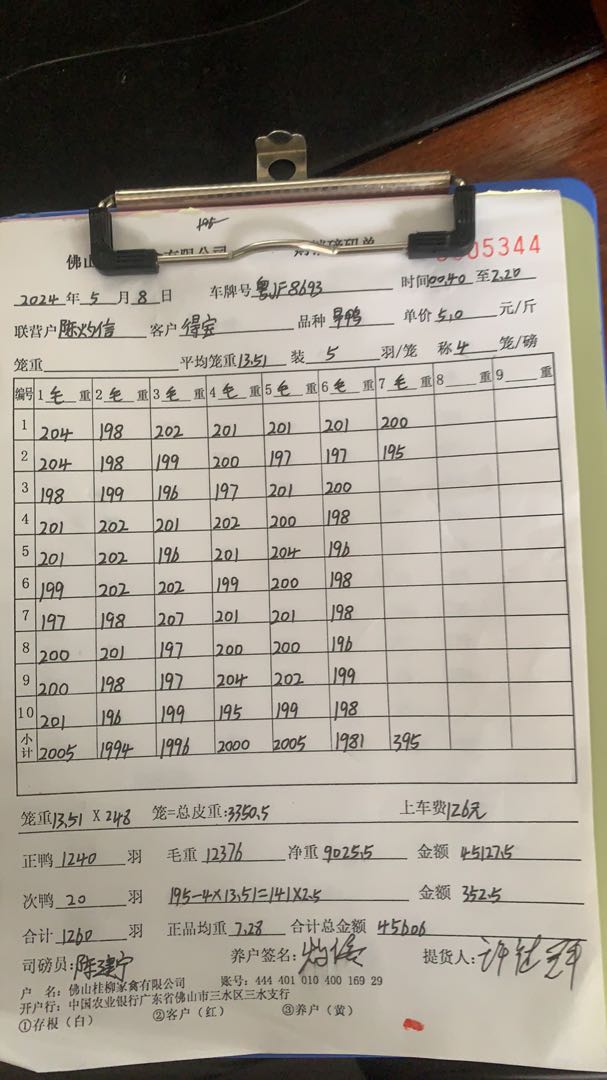 195
佛山 有限公司 005344
2024 年 5 月 8 日 车牌号 粤JF8693 时间 00.40 至 2.20
联营户 陈灼信 客户 得宝 品种 旱鸭 单价 5.0 元/斤
笼重 平均笼重 13.51 装 5 羽/笼 称 4 笼/磅
编号 1 毛 重 2 毛 重 3 毛 重 4 毛 重 5 毛 重 6 毛 重 7 毛 重 8 重 9 重
1 204 198 202 201 201 201 200
2 204 198 199 200 197 197 195
3 198 199 196 197 201 200
4 201 202 201 202 200 198
5 201 202 196 201 204 196
6 199 202 202 199 200 198
7 197 198 207 201 201 198
8 200 201 197 200 200 196
9 200 198 197 204 202 199
10 201 196 199 195 199 198
小计 2005 1994 1996 2000 2005 1981 395
笼重 13.51 X 248 笼=总皮重:3350.5 上车费 126元
正鸭 1240 羽 毛重 12376 净重 9025.5 金额 45127.5
次鸭 20 羽 195-4X13.51=141X2.5 金额 352.5
合计 1260 羽 正品均重 7.28 合计总金额 45606
司磅员: 陈建宁 养户签名: 灼信 提货人:
户 名: 佛山桂柳家禽有限公司 账号: 444 401 010 400 169 29
开户行: 中国农业银行广东省佛山市三水区三水支行
①存根（白） ②客户（红） ③养户（黄）